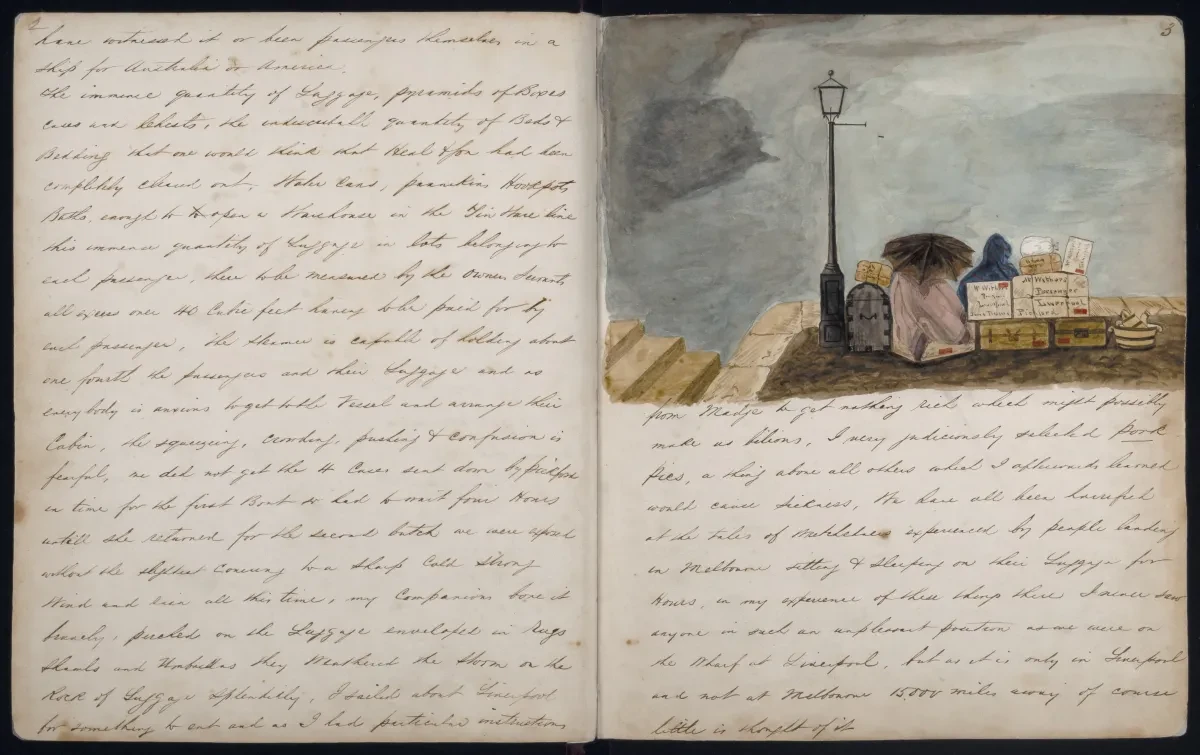 2
have witnessed it or been passengers themselves in a
ship for Australia or America.
The immence quantity of Luggage, pyramids of Boxes
cases and Chests, the indescribable quantity of Beds &
Bedding that one would think that Heal & Son had been
completely cleared out, Water Cans, pannikins Hookpots
Baths, enough to open a Warehouse in the Tin Ware line
this immense quantity of Luggage in lots belonging to
each passenger, there to be measured by the owners Servants
all excess over 40 Cubic feet having to be paid for by
each passenger, The steamer is capable of holding about
one fourth the passengers and their Luggage and as
everybody is anxious to get to the Vessel and arrange their
Cabin, the squeezing, crowding, pushing & confusion is
fearful, we did not get the 4 Cases sent down by pickford
in time for the first Boat so had to wait four Hours
untill she returned for the second batch we were exposed
without the slightest Covering to a Sharp Cold Strong
Wind and rain all this time, my Companions bore it
bravely, perched on the Luggage enveloped in Rugs
Shawls and Umbrellas they Weathered the Storm on the
Rock of Luggage splendidly, I sailed about Liverpool
for something to eat and as I had particular instructions
3
W Withers
Liverpool
W Withers
Passenger
Liverpool
Pickford
from Madge to get nothing rich which might possibly
make us bilious, I very judiciously selected Pork
Pies, a thing above all others which I afterwards learned
would cause Sickness, We have all been horrified
at the tales of experienced by people landing
in Melbourne sitting & sleeping on their Luggage for
Hours, in my experience of these things there I never saw
anyone in such an unpleasant position as we were on
the Wharf at Liverpool, but as it is only in Liverpool
and not at Melbourne 15,000 miles away of course
little is thought of it